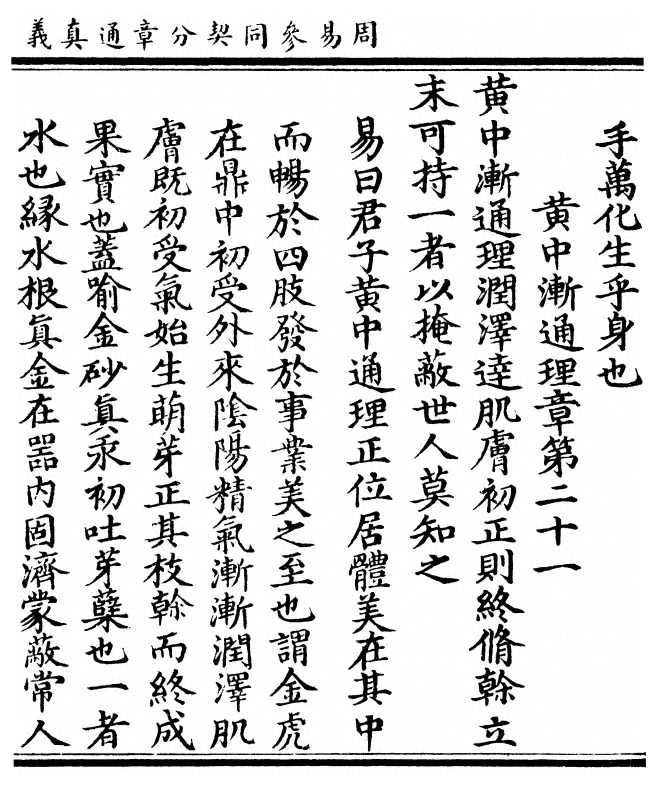 周易參同契分章通真義
手萬化生乎身也
黃中漸通理章第二十一
黃中漸通理潤澤達肌膚初正則終脩幹立
末可持一者以掩蔽世人莫知之
易曰君子黃中通理正位居體美在其中
而暢於四肢發於事業美之至也謂金虎
在鼎中初受外來陰陽精氣漸漸潤澤肌
膚既初受氣始生萌芽正其枝幹而終成
果實也蓋喻金砂真汞初吐芽蘖也一者
水也緣水根真金在器内固濟蒙蔽常人